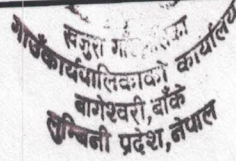 खजुरा गाउँपालिका
गाउँकार्यपालिकाको कार्यालय
बागेश्वरी, बाँके
लुम्बिनी प्रदेश, नेपाल